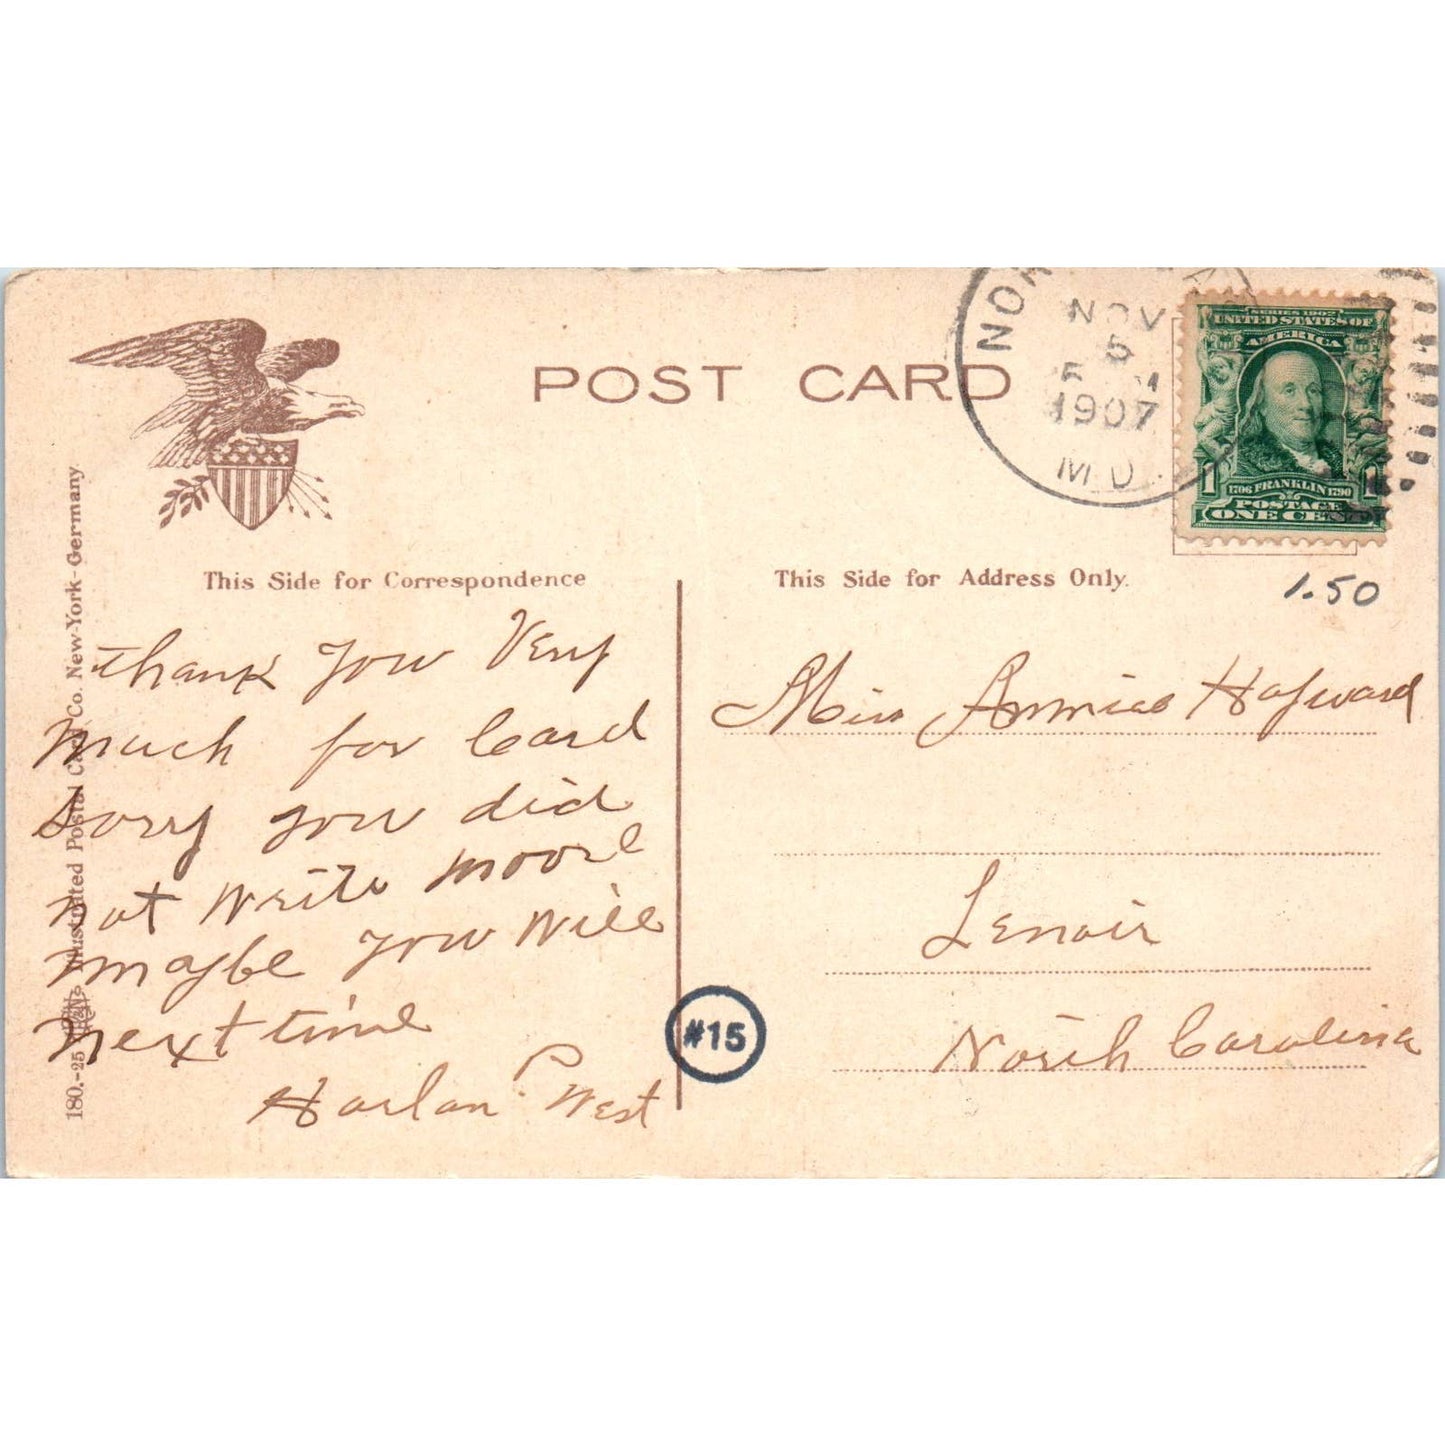 POST CARD
NOV
5
1907
MD.
SERIES 1902
UNITED STATES OF
AMERICA
1 1
1706 FRANKLIN 1790
POSTAGE
ONE CENT
1.50
This Side for Correspondence
thank you Very
much for Card
sorry you did
not write moore
maybe you will
next time
Harlan P West
This Side for Address Only.
Miss Annie Hayward
Lenoir
North Carolina
#15
180.-25 Illustrated Postal Card Co. New-York-Germany